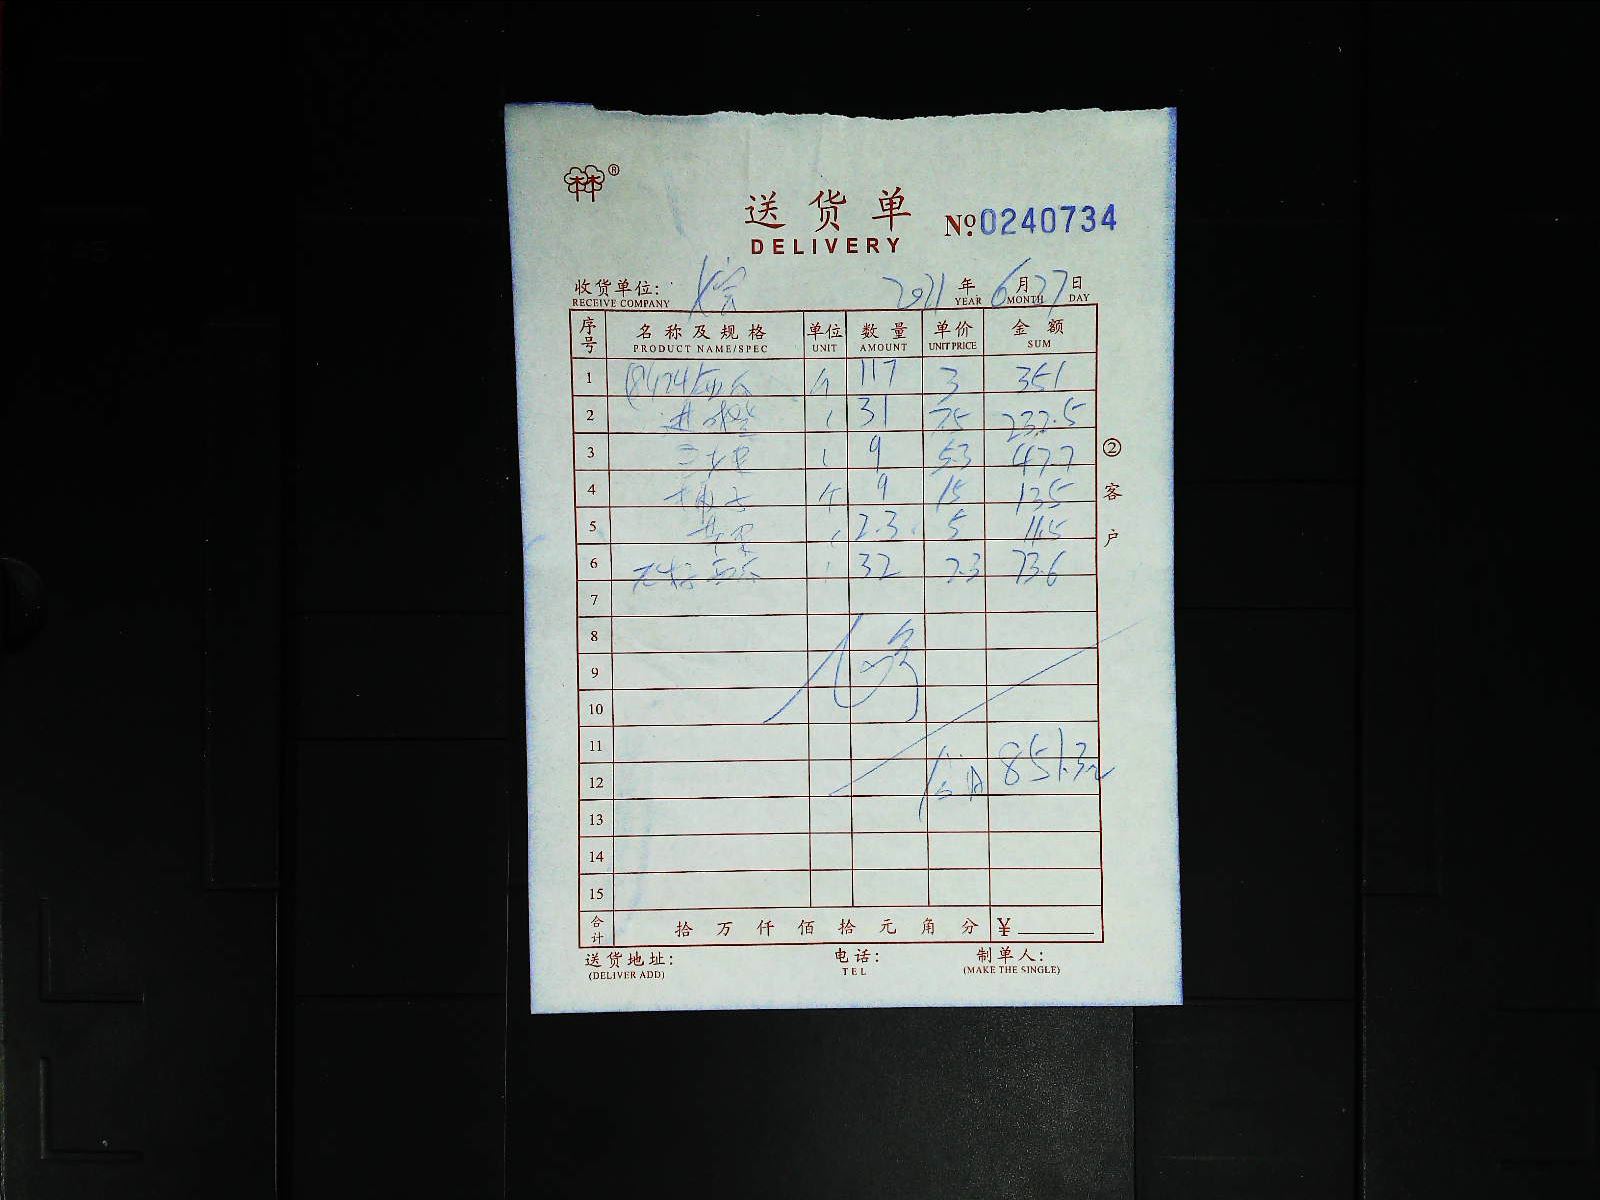 林®
送货单
DELIVERY
No.0240734
收货单位: 2021年6月27日
RECEIVE COMPANY YEAR MONTH DAY
序号 名称及规格 单位 数量 单价 金额
PRODUCT NAME/SPEC UNIT AMOUNT UNIT PRICE SUM
1 个 117 3 351
2 进口橙 31 7.5 232.5
3 9 5.3 47.7
4 个 9 15 135
5 苹果 2.3 5 11.5
6 32 2.3 73.6
7
8
9
10
11
12 合计 851.3元
13
14
15
合计 拾万仟佰拾元角分 ¥
② 客户
送货地址: 电话: 制单人:
(DELIVER ADD) TEL (MAKE THE SINGLE)